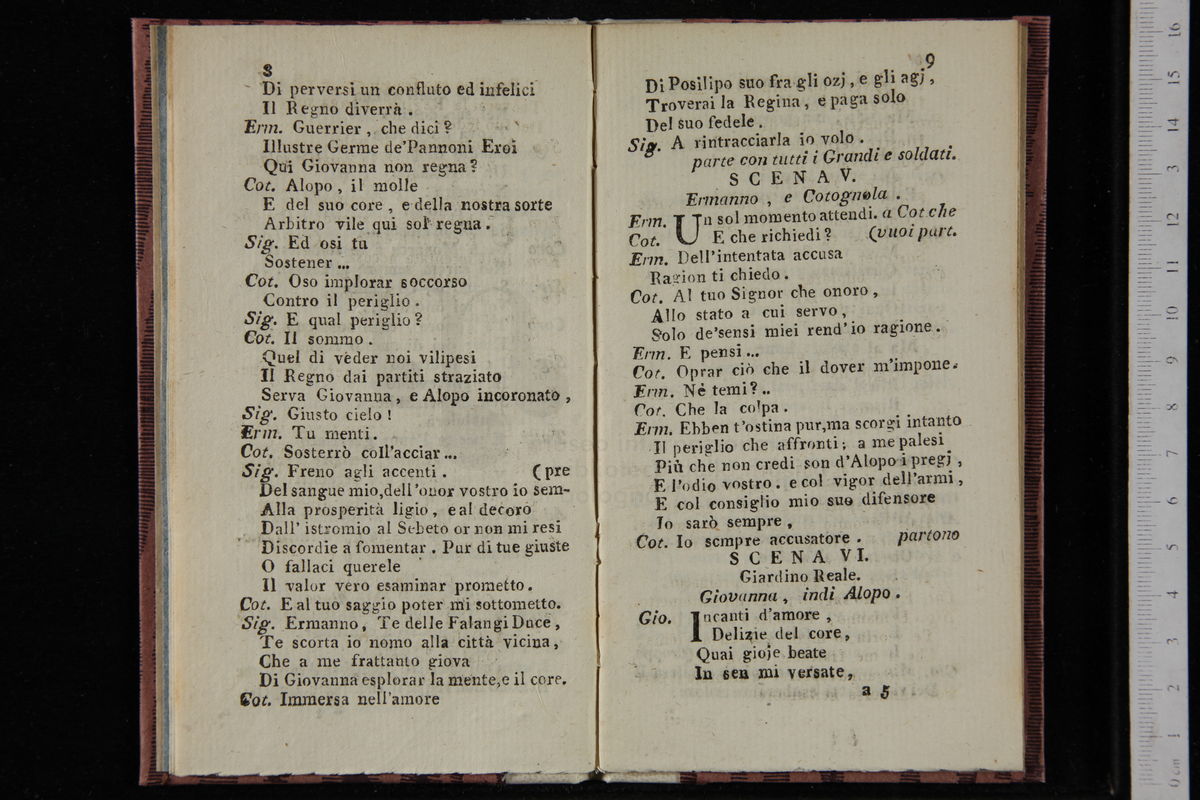 8
Di perversi un confluto ed infelici
Il Regno diverrà .
Erm. Guerrier , che dici ?
Illustre Germe de'Pannoni Eroi
Qui Giovanna non regna ?
Cot. Alopo , il molle
E del suo core , e della nostra sorte
Arbitro vile qui sol regna .
Sig. Ed osi tu
Sostener ...
Cot. Oso implorar soccorso
Contro il periglio .
Sig. E qual periglio ?
Cot. Il sommo .
Quel di veder noi vilipesi
Il Regno dai partiti straziato
Serva Giovanna , e Alopo incoronato ,
Sig. Giusto cielo !
Erm. Tu menti .
Cot. Sosterrò coll'acciar ...
Sig. Freno agli accenti . (pre
Del sangue mio,dell'onor vostro io sem-
Alla prosperità ligio , e al decoro
Dall' istromio al Sebeto or non mi resi
Discordie a fomentar . Pur di tue giuste
O fallaci querele
Il valor vero esaminar prometto .
Cot. E al tuo saggio poter mi sottometto.
Sig. Ermanno , Te delle Falangi Duce ,
Te scorta io nomo alla città vicina ,
Che a me frattanto giova
Di Giovanna esplorar la mente,e il core.
Cot. Immersa nell'amore
9
Di Posilipo suo fra gli ozj , e gli agj ,
Troverai la Regina , e paga solo
Del suo fedele .
Sig. A rintracciarla io volo .
parte con tutti i Grandi e soldati.
SCENA V.
Ermanno , e Cotognola .
Erm. Un sol momento attendi. a Cot che
Cot. E che richiedi ? (vuol part.
Erm. Dell'intentata accusa
Ragion ti chiedo .
Cot. Al tuo Signor che onoro ,
Allo stato a cui servo ,
Solo de'sensi miei rend'io ragione .
Erm. E pensi ...
Cot. Oprar ciò che il dover m'impone.
Erm. Nè temi ? ..
Cot. Che la colpa .
Erm. Ebben t'ostina pur,ma scorgi intanto
Il periglio che affronti ; a me palesi
Più che non credi son d'Alopo i pregj ,
E l'odio vostro . e col vigor dell'armi ,
E col consiglio mio suo difensore
Io sarò sempre ,
Cot. Io sempre accusatore . partono
SCENA VI.
Giardino Reale.
Giovanna , indi Alopo .
Gio. Incanti d'amore ,
Delizie del core ,
Quai gioje beate
In sen mi versate ,
a 5